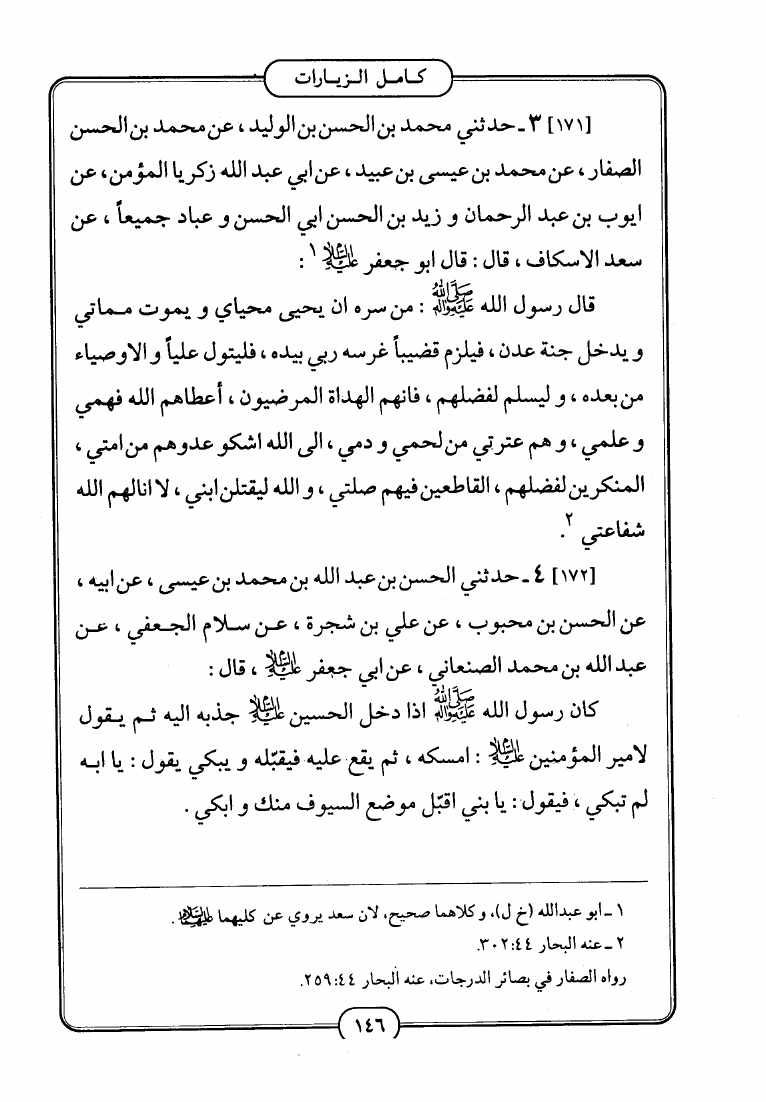 كامل الزيارات
[١٧١] ٣ ـ حدثني محمد بن الحسن بن الوليد ، عن محمد بن الحسن
الصفار ، عن محمد بن عيسى بن عبيد ، عن ابي عبد الله زكريا المؤمن، عن
ايوب بن عبد الرحمان و زيد بن الحسن ابي الحسن و عباد جميعاً ، عن
سعد الاسكاف ، قال : قال ابو جعفر عليه السلام ١ :
قال رسول الله صلى الله عليه وآله : من سره ان يحيى محياي و يموت مماتي
و يدخل جنة عدن ، فيلزم قضيباً غرسه ربي بيده ، فليتول علياً و الاوصياء
من بعده ، و ليسلم لفضلهم ، فانهم الهداة المرضيون ، أعطاهم الله فهمي
و علمي ، و هم عترتي من لحمي و دمي ، الى الله اشكو عدوهم من امتي ،
المنكرين لفضلهم ، القاطعين فيهم صلتي ، و الله ليقتلن ابني ، لا انالهم الله
شفاعتي ٢.
[١٧٢] ٤ ـ حدثني الحسن بن عبد الله بن محمد بن عيسى ، عن ابيه ،
عن الحسن بن محبوب ، عن علي بن شجرة ، عن سلام الجعفي ، عن
عبد الله بن محمد الصنعاني ، عن ابي جعفر عليه السلام ، قال :
كان رسول الله صلى الله عليه وآله اذا دخل الحسين عليه السلام جذبه اليه ثم يقول
لامير المؤمنين عليه السلام : امسكه ، ثم يقع عليه فيقبّله و يبكي يقول : يا ابه
لم تبكي ، فيقول : يا بني اقبّل موضع السيوف منك و ابكي .
١ ـ ابو عبدالله (خ ل)، و كلاهما صحيح، لان سعد يروي عن كليهما عليهما السلام .
٢ ـ عنه البحار ٣٠٢:٤٤.
رواه الصفار في بصائر الدرجات، عنه البحار ٢٥٩:٤٤.
١٤٦